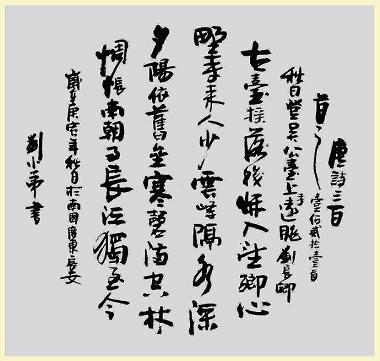 唐詩三百
首之 壹佰貳拾壹首
秋日登吳公臺上寺遠眺 劉長卿
古臺摇落後秋入望鄉心
野寺來人少雲峰隔水深
夕陽依舊壘寒磬滿空林
惆悵南朝事長江獨至今
歲在庚寅年秋日於南國廣東
劉小弟書